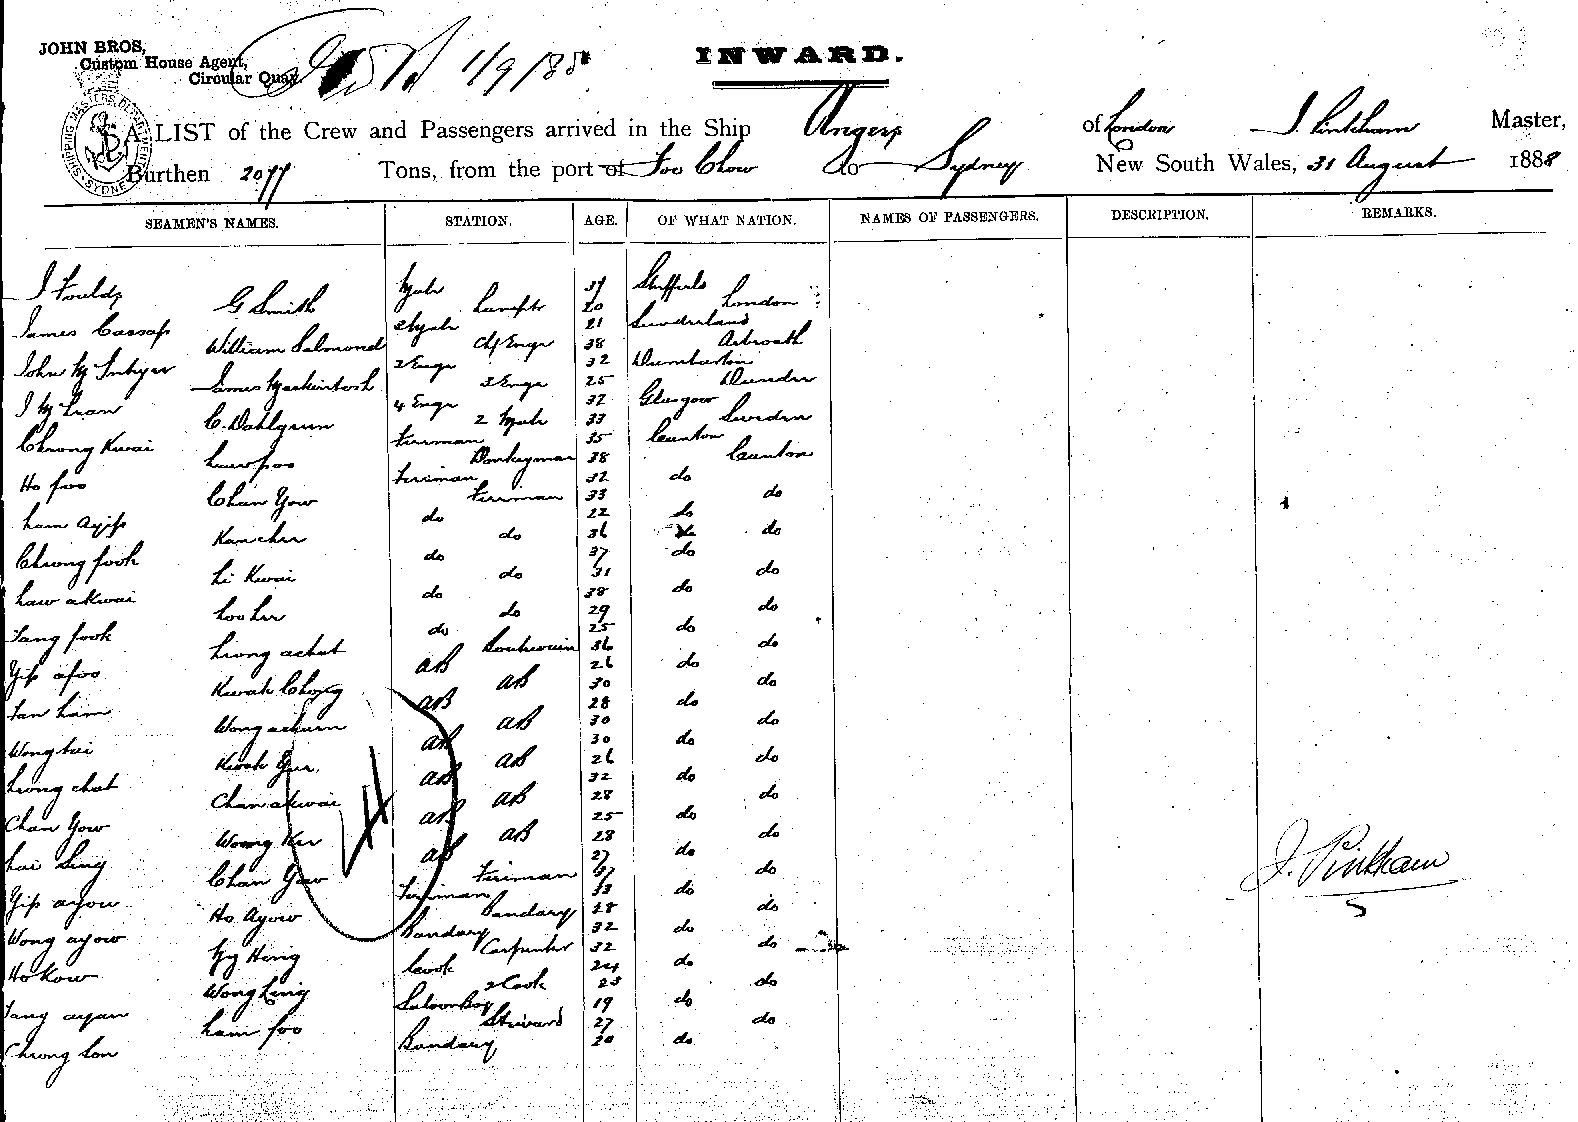 JOHN BROS,
Custom House Agent,
Circular Quay
1/9/88
INWARD.
SHIPPING MASTERS DEPARTMENT SYDNEY
A LIST of the Crew and Passengers arrived in the Ship Angers of London J. Pinkham Master,
Burthen 2077 Tons, from the port of Foo Chow to Sydney New South Wales, 31 August 1888
SEAMEN'S NAMES. STATION. AGE. OF WHAT NATION. NAMES OF PASSENGERS. DESCRIPTION. REMARKS.
J Foulds Mate 37
G Smith Lamptr 20 London
James 2 Mate 21 Sunderland
William Salmond Chf Engr 38 Arbroath
John 2 Engr 32 Dumbarton
James Mackintosh 3 Engr 25 Dundee
J 4 Engr 32 Glasgow
C. Dahlgren 2 Mate 33 Sweden
Cheong Kwai Fireman 35 Canton
Donkeyman 38 Canton
Ho foo Fireman 32 do
Chan Yow Fireman 33 do
Lam do 22 do
Kam chee do 36 do
Cheong fook do 37 do
Li Kwai do 31 do
Law akwai do 38 do
Loo hee do 29 do
Tang fook do 25 do
Leong achat Boatswain 36 do
Yip afoo AB 26 do
Kwok Chong AB 30 do
Tan ham AB 28 do
Wong achum AB 30 do
Wong hei AB 30 do
Kwok Yee AB 26 do
Leong chat AB 32 do
Chan akwai AB 28 do
Chan Yow AB 25 do
Wong Kee AB 28 do
Lai Sing AB 27 do
Chan Yow Fireman 37 do
Yip ayow Fireman 33 do
Ho Ayow Bandary 28 do
Wong ayow Bandary 32 do
Ng Hing Carpenter 32 do
Ho Kow Cook 24 do
Wong Ling 2 Cook 23 do
Tang ayan Saloon Boy 19 do
Lam foo Steward 27 do
Cheong Son Bandary 20 do
J. Pinkham